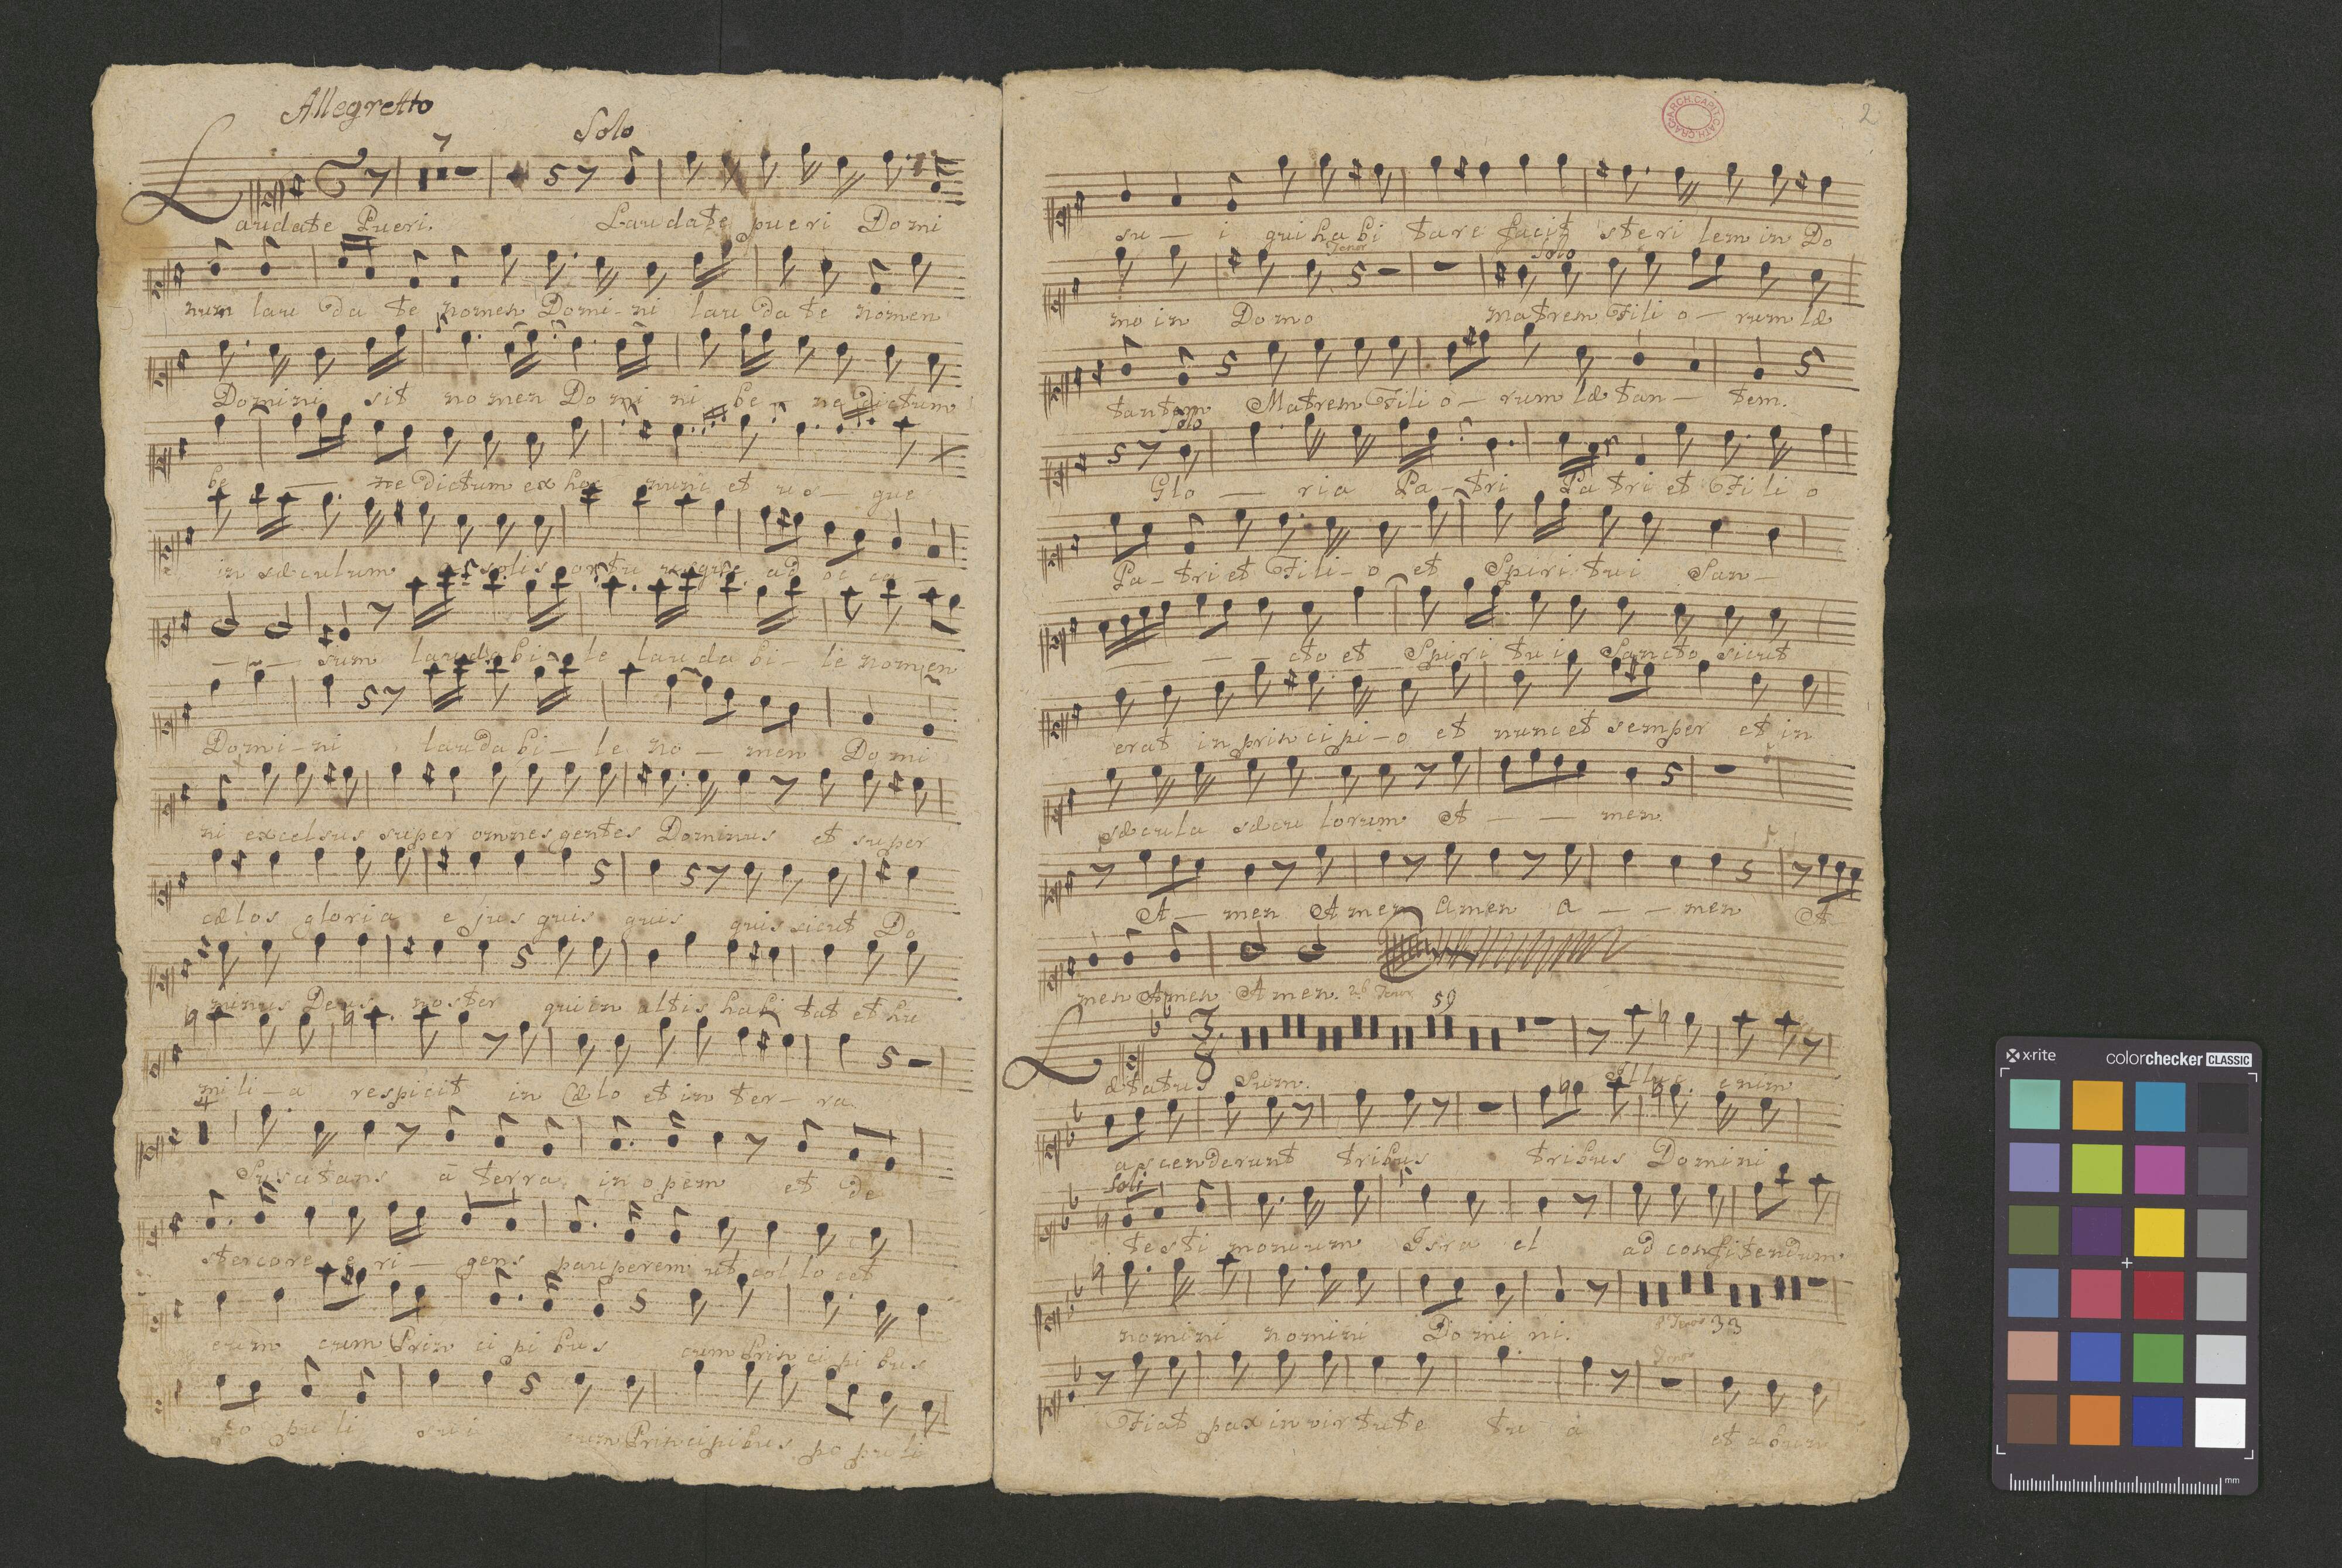 Allegretto
7 Solo
Laudate Pueri. Laudate pueri Domi
num lau da te nomen Domi-ni lau da te nomen
Domini sit nomen Do mi ni be - ne dictum
be - ne dictum ex hoc nunc et us - que
in sæculum a solis ortu usque ad oc ca -
- - sum laudabi le lau da bi - le nomen
Domi-ni laudabi - le no - men Domi
ni excelsus super omnes gentes Dominus et super
cælos gloria ejus quis quis quis sicut Do
minus Deus noster qui in altis habi tat et hu
mi li - a respicit in Cælo et in ter - ra
Suscitans a terra inopem et de
stercore e ri - gens pauperem ut col lo cet
eum cum Prin ci pi bus cum Prin ci pi bus
po pu li su i cum Principibus po pu li
2
ARCH. CAPIT. CATH. CRAC.
su - i qui habi tare facit steri lem in Do
Tenor Solo
mo in Domo matrem Fili o - rum læ
tantem Matrem Fili o - rum læ tan - tem.
Solo
Glo - ria Pa - tri Pa tri et Fi li o
Pa - tri et Fi li - o et Spiri tui San -
- - - cto et Spiri tu i Sancto sicut
erat in princi pi - o et nunc et semper et in
sæcula sæcu lorum A - - men
A - men Amen Amen a - - men A
men Amen Amen. Tenor
59
Lætatus Sum. Illuc enim
ascenderunt tribus tribus Domini
Soli
testi monium Isra el ad confitendum
nomini nomini Domi ni.
Tenor 33
Tenor
Fiat pax in virtute tu a et abun
x·rite colorchecker CLASSIC
mm